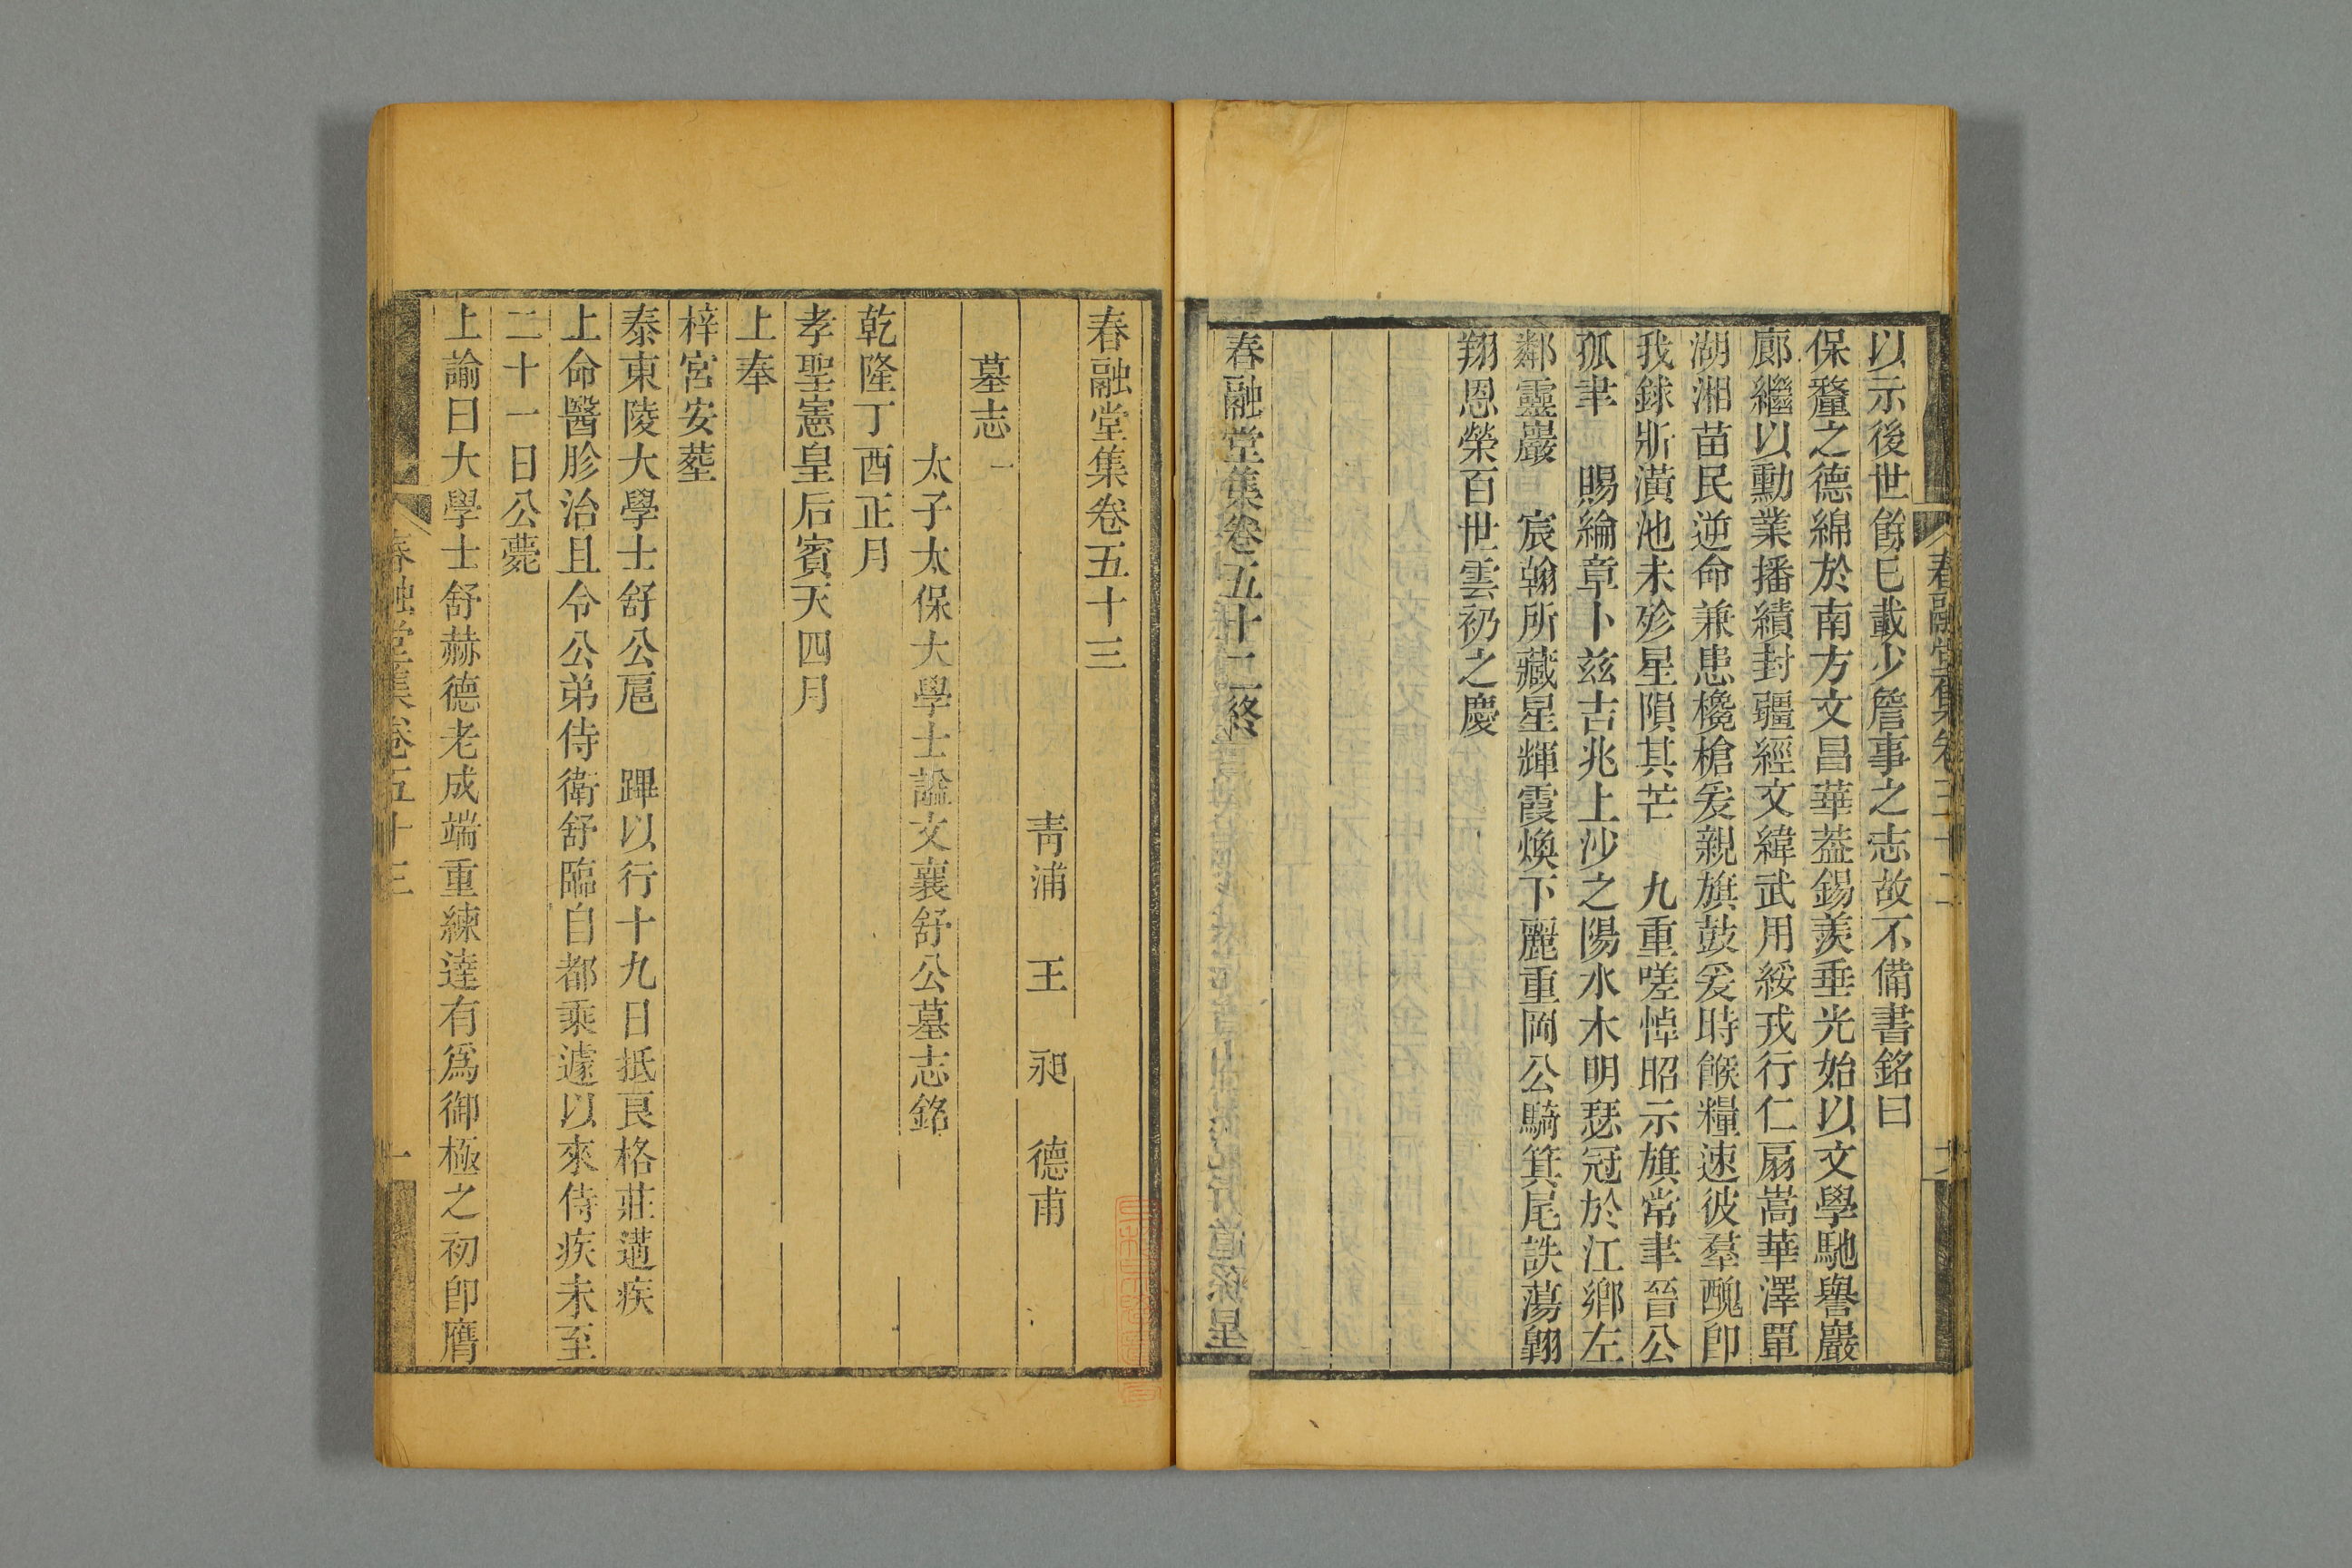 以示後世餘已載少詹事之志故不備書銘曰
保釐之德綿於南方文昌華葢錫羨垂光始以文學馳譽巖
廊繼以勳業播績封疆經文緯武用綏戎行仁扇嵩華澤覃
湖湘苗民逆命兼患欃槍爰親旗鼓爰時餱糧速彼羣醜卽
我銶斨潢池未殄星隕其芒　九重嗟悼昭示旗常聿晉公
孤聿　賜綸章卜兹吉兆上沙之陽水木明瑟冠於江鄉左
鄰靈巖　宸翰所藏星輝霞煥下麗重岡公騎箕尾詄蕩翺
翔恩榮百世雲礽之慶
春融堂集卷五十二終
春融堂集卷五十三
青浦　王　昶　德甫
墓志一
太子太保大學士諡文襄舒公墓志銘
乾隆丁酉正月
孝聖憲皇后賓天四月
上奉
梓宮安葬
泰東陵大學士舒公扈　蹕以行十九日抵良格莊遘疾
上命醫胗治且令公弟侍衛舒臨自都乘遽以來侍疾未至
二十一日公薨
上諭曰大學士舒赫德老成端重練達有爲御極之初卽膺
春融堂集卷五十三
一